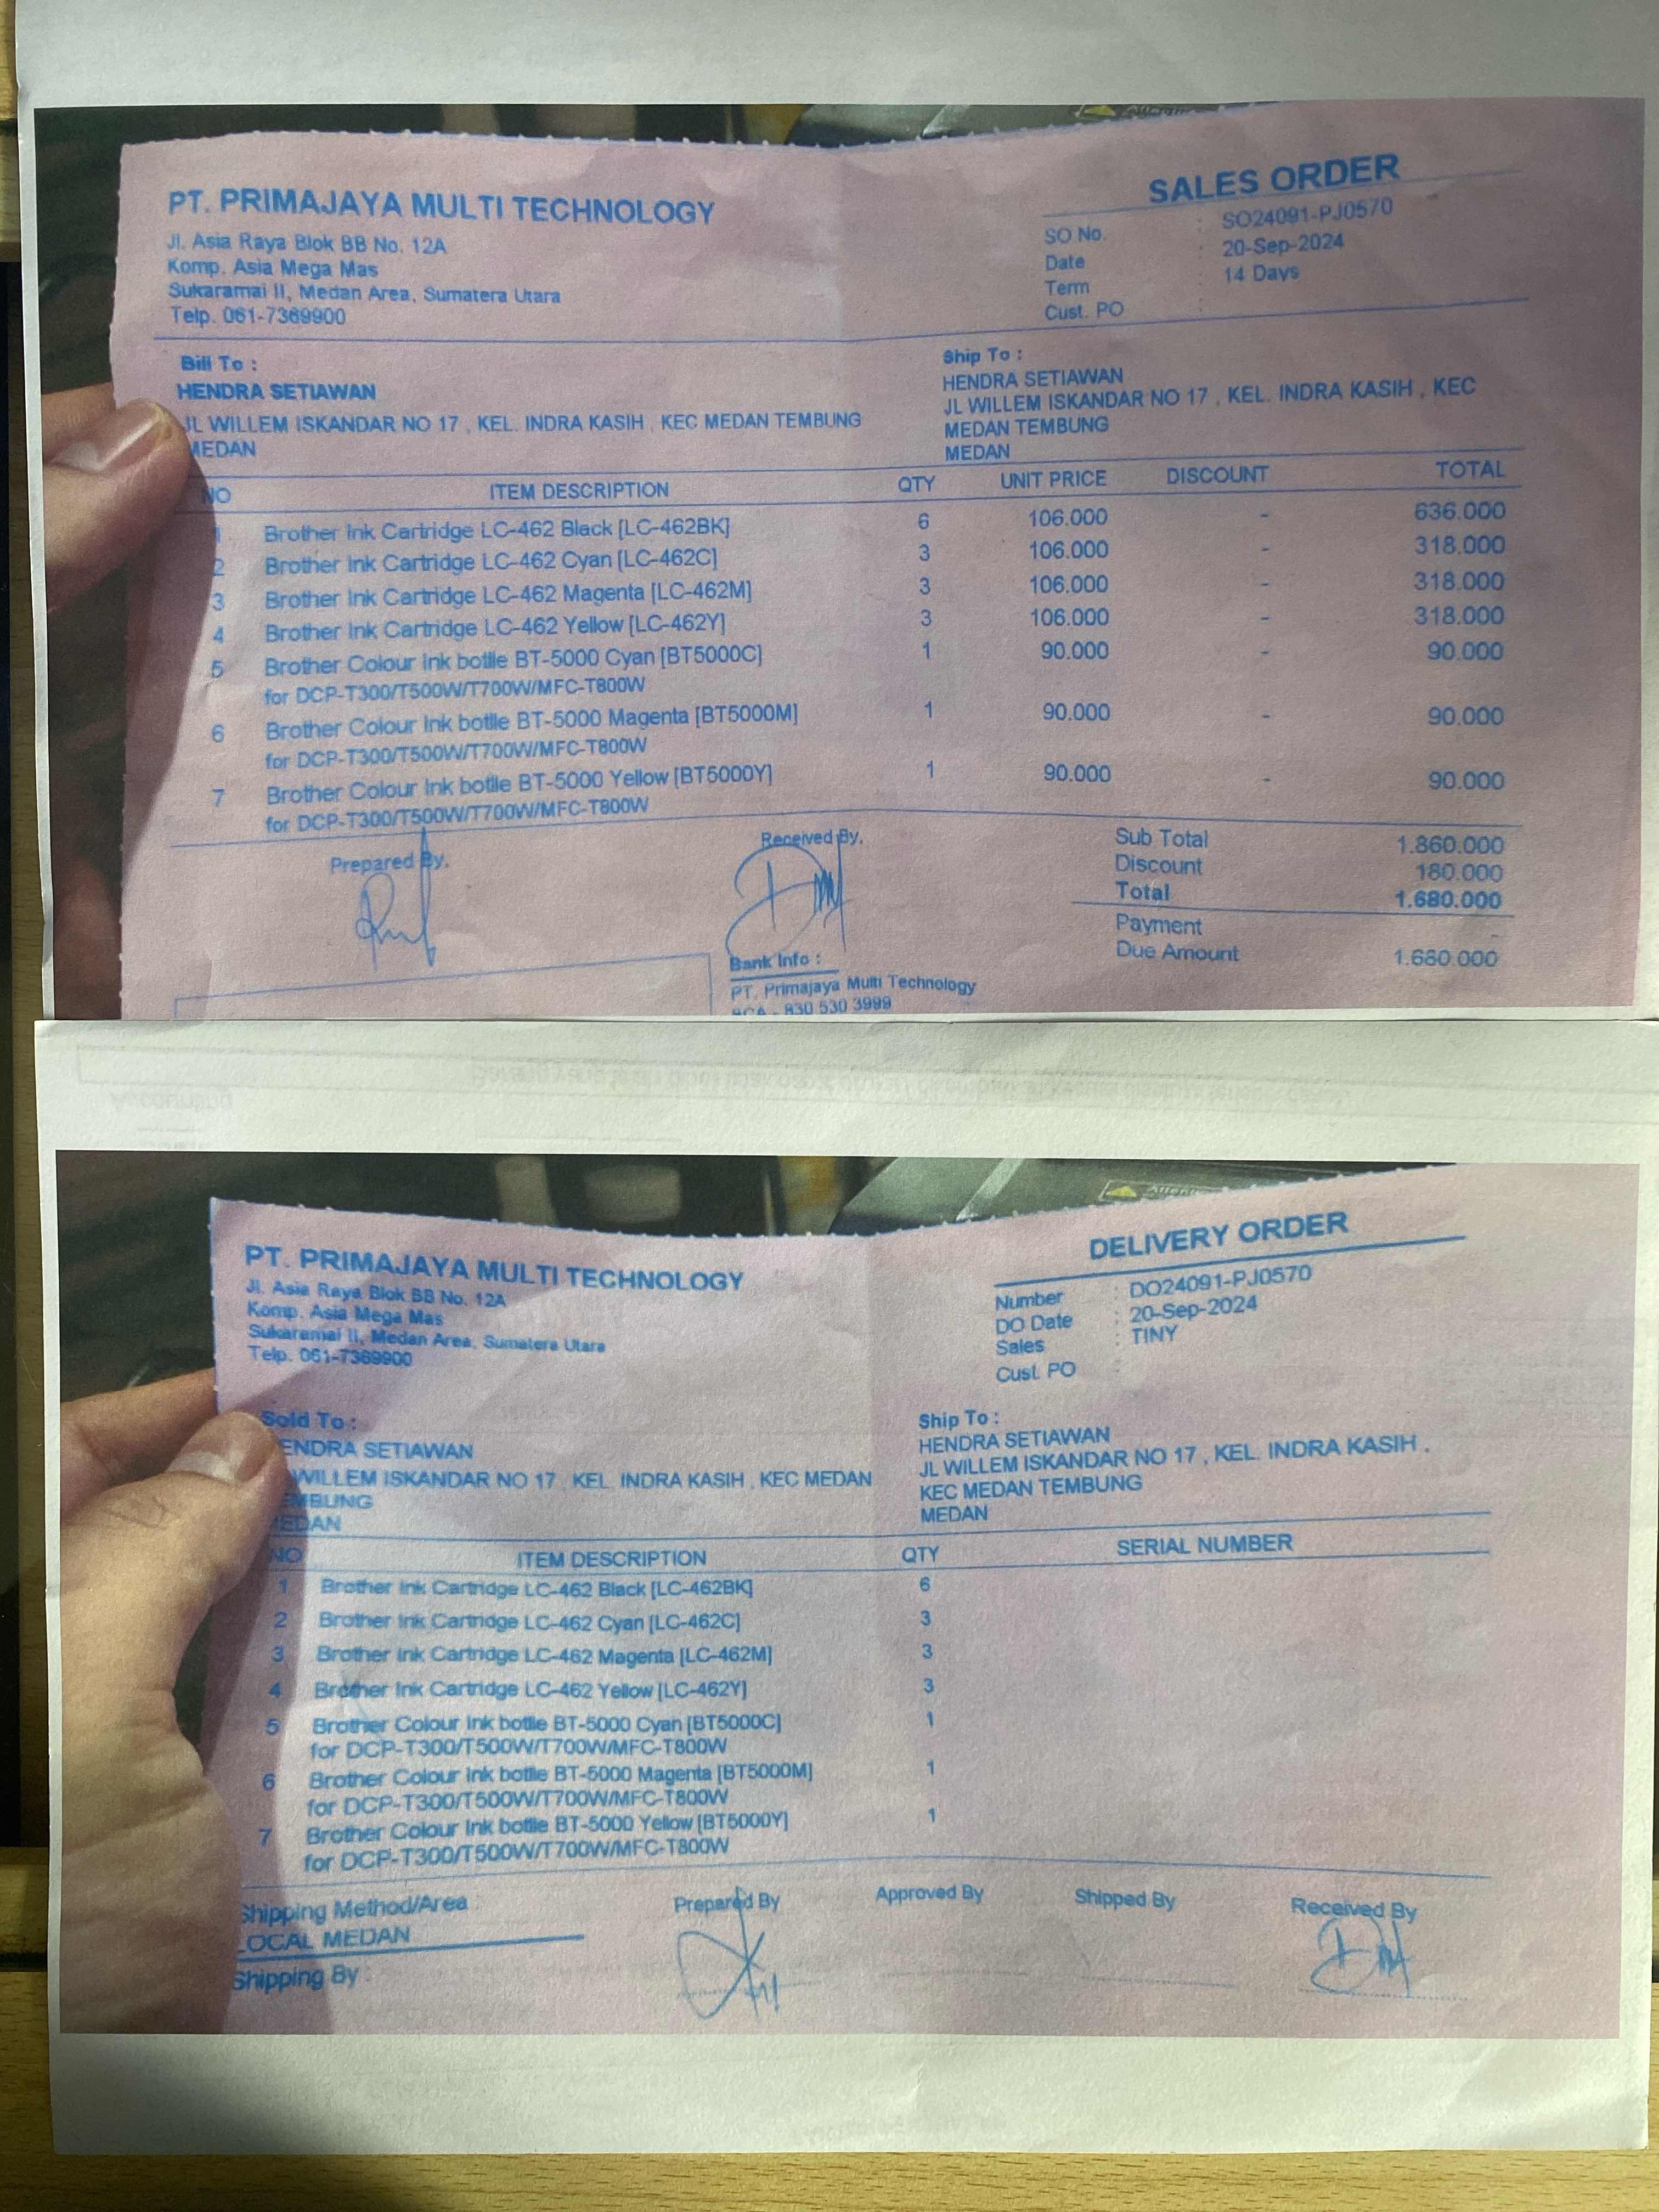 PT. PRIMAJAYA MULTI TECHNOLOGY
Jl. Asia Raya Blok BB No. 12A
Komp. Asia Mega Mas
Sukaramai II, Medan Area, Sumatera Utara
Telp. 061-7369900
SALES ORDER
SO No. : SO24091-PJ0570
Date : 20-Sep-2024
Term : 14 Days
Cust. PO :
Bill To :
HENDRA SETIAWAN
JL WILLEM ISKANDAR NO 17 , KEL. INDRA KASIH , KEC MEDAN TEMBUNG
MEDAN
Ship To :
HENDRA SETIAWAN
JL WILLEM ISKANDAR NO 17 , KEL. INDRA KASIH , KEC
MEDAN TEMBUNG
MEDAN
NO ITEM DESCRIPTION QTY UNIT PRICE DISCOUNT TOTAL
1 Brother Ink Cartridge LC-462 Black [LC-462BK] 6 106.000 - 636.000
2 Brother Ink Cartridge LC-462 Cyan [LC-462C] 3 106.000 - 318.000
3 Brother Ink Cartridge LC-462 Magenta [LC-462M] 3 106.000 - 318.000
4 Brother Ink Cartridge LC-462 Yellow [LC-462Y] 3 106.000 - 318.000
5 Brother Colour Ink botlle BT-5000 Cyan [BT5000C] 1 90.000 - 90.000
for DCP-T300/T500W/T700W/MFC-T800W
6 Brother Colour Ink botlle BT-5000 Magenta [BT5000M] 1 90.000 - 90.000
for DCP-T300/T500W/T700W/MFC-T800W
7 Brother Colour Ink botlle BT-5000 Yellow [BT5000Y] 1 90.000 - 90.000
for DCP-T300/T500W/T700W/MFC-T800W
Prepared By,
Received By,
Sub Total 1.860.000
Discount 180.000
Total 1.680.000
Payment -
Due Amount 1.680.000
Bank Info :
PT. Primajaya Multi Technology
BCA - 830 530 3999
PT. PRIMAJAYA MULTI TECHNOLOGY
Jl. Asia Raya Blok BB No. 12A
Komp. Asia Mega Mas
Sukaramai II, Medan Area, Sumatera Utara
Telp. 061-7369900
DELIVERY ORDER
Number : DO24091-PJ0570
DO Date : 20-Sep-2024
Sales : TINY
Cust. PO :
Sold To :
ENDRA SETIAWAN
WILLEM ISKANDAR NO 17 , KEL. INDRA KASIH , KEC MEDAN
EMBUNG
EDAN
Ship To :
HENDRA SETIAWAN
JL WILLEM ISKANDAR NO 17 , KEL. INDRA KASIH ,
KEC MEDAN TEMBUNG
MEDAN
NO ITEM DESCRIPTION QTY SERIAL NUMBER
1 Brother Ink Cartridge LC-462 Black [LC-462BK] 6
2 Brother Ink Cartridge LC-462 Cyan [LC-462C] 3
3 Brother Ink Cartridge LC-462 Magenta [LC-462M] 3
4 Brother Ink Cartridge LC-462 Yellow [LC-462Y] 3
5 Brother Colour Ink botlle BT-5000 Cyan [BT5000C] 1
for DCP-T300/T500W/T700W/MFC-T800W
6 Brother Colour Ink botlle BT-5000 Magenta [BT5000M] 1
for DCP-T300/T500W/T700W/MFC-T800W
7 Brother Colour Ink botlle BT-5000 Yellow [BT5000Y] 1
for DCP-T300/T500W/T700W/MFC-T800W
Shipping Method/Area :
LOCAL MEDAN
Shipping By :
Prepared By
Approved By
Shipped By
Received By